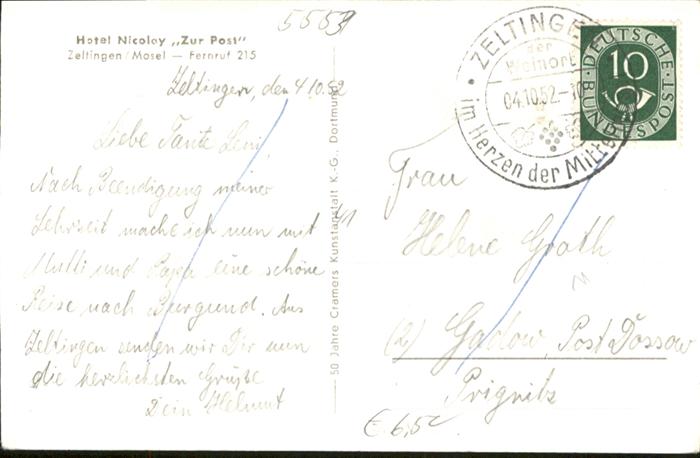 5553
Hotel Nicolay „Zur Post"
Zeltingen/Mosel — Fernruf 215
Zeltingen, den 4.10.52
Liebe Tante Leni,
Nach Beendigung meiner
Lehrzeit mache ich nun mit
Mutti und Papa eine schöne
Reise nach Burgund. Aus
Zeltingen senden wir Dir nun
die herzlichsten Grüße
Dein Helmut
50 Jahre Cramers Kunstanstalt K.-G., Dortmund
ZELTINGEN
der
Weinort
04.10.52
im Herzen der Mittel
DEUTSCHE
10
BUNDESPOST
Frau
Helene Groth
(2) Gadow, Post Dossow
Prignitz
€ 6,5